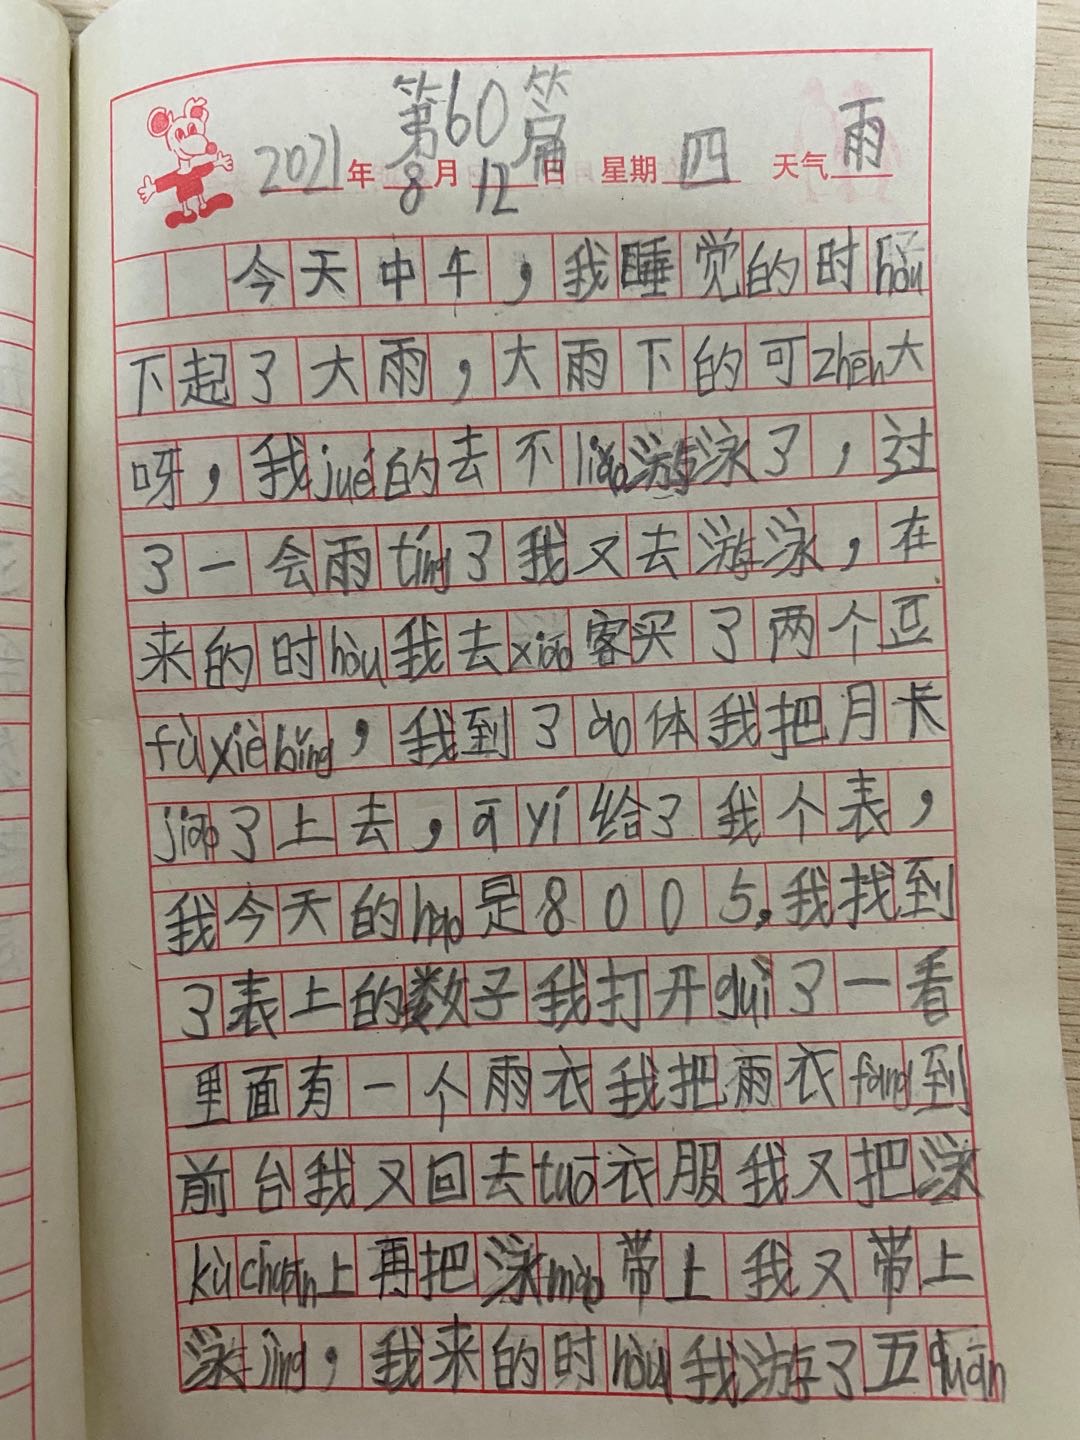 第60篇
2021年8月12日 星期四 天气雨
今天中午，我睡觉的时hòu
下起了大雨，大雨下的可zhēn大
呀，我jué的去不liǎo游泳了，过
了一会雨tíng了我又去游泳，在
来的时hòu我去xiǎo客买了两个豆
fǔxièbǐng，我到了ào体我把月卡
jiāo了上去，ā yí给了我个表，
我今天的hào是8005。我找到
了表上的数子我打开guì了一看
里面有一个雨衣我把雨衣fàng到
前台我又回去tuō衣服我又把泳
kùchuān上再把泳mào带上我又带上
泳jìng，我来的时hòu我游了五quān